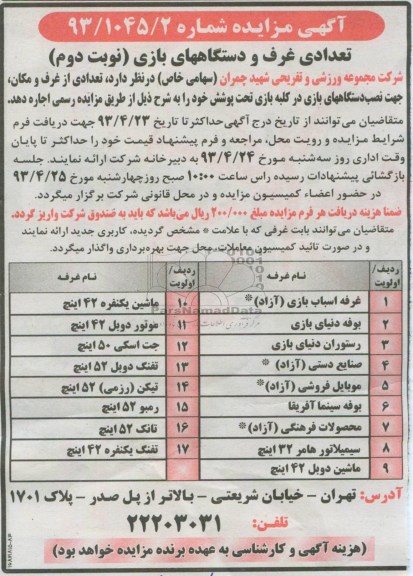 آگهی مزایده شماره ۹۳/۱۰۴۵/۲
تعدادی غرف و دستگاههای بازی (نوبت دوم)
شرکت مجموعه ورزشی و تفریحی شهید چمران (سهامی خاص) درنظر دارد، تعدادی از غرف و مکان،
جهت نصب دستگاههای بازی در کلیه بازی تحت پوشش خود را به شرح ذیل از طریق مزایده رسمی اجاره دهد.
متقاضیان می‌توانند از تاریخ درج آگهی حداکثر تا تاریخ ۹۳/۴/۲۳ جهت دریافت فرم
شرایط مزایده و رویت محل، مراجعه و فرم پیشنهاد قیمت خود را حداکثر تا پایان
وقت اداری روز سه‌شنبه مورخ ۹۳/۴/۲۴ به دبیرخانه شرکت ارائه نمایند. جلسه
بازگشائی پیشنهادات رسیده راس ساعت ۱۰:۰۰ صبح روز چهارشنبه مورخ ۹۳/۴/۲۵
در حضور اعضاء کمیسیون مزایده و در محل قانونی شرکت برگزار میگردد.
ضمنا هزینه دریافت هر فرم مزایده مبلغ ۲۰۰/۰۰۰ ریال می‌باشد که باید به صندوق شرکت واریز گردد.
متقاضیان می‌توانند بابت غرفی که با علامت * مشخص گردیده، کاربری جدید ارائه نمایند
و در صورت تائید کمیسیون معاملات، محل جهت بهره‌برداری واگذار میگردد.
ردیف/اولویت نام غرفه ردیف/اولویت نام غرفه
۱ غرفه اسباب بازی (آزاد)* ۱۰ ماشین یکنفره ۴۲ اینچ
۲ بوفه دنیای بازی ۱۱ موتور دوبل ۴۲ اینچ
۳ رستوران دنیای بازی ۱۲ جت اسکی ۵۰ اینچ
۴ صنایع دستی (آزاد) * ۱۳ تفنگ دوبل ۵۲ اینچ
۵ موبایل فروشی (آزاد) * ۱۴ تیکن (رزمی) ۵۲ اینچ
۶ بوفه سینما آفریقا ۱۵ رمبو ۵۲ اینچ
۷ محصولات فرهنگی (آزاد) * ۱۶ تانک ۵۲ اینچ
۸ سیمیلاتور هامر ۳۲ اینچ ۱۷ تفنگ یکنفره ۴۲ اینچ
۹ ماشین دوبل ۴۲ اینچ
آدرس: تهران - خیابان شریعتی - بالاتر از پل صدر - پلاک ۱۷۰۱
تلفن: ۲۲۲۰۳۰۳۱
(هزینه آگهی و کارشناسی به عهده برنده مزایده خواهد بود)